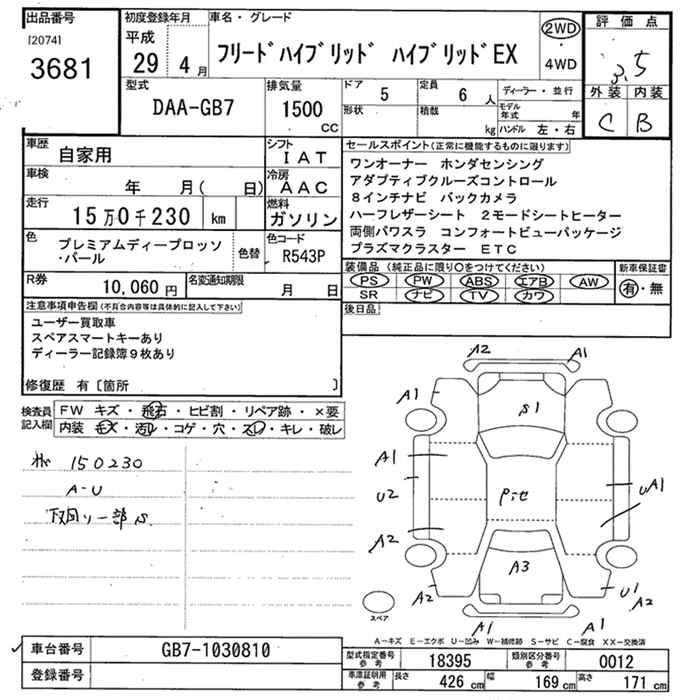 出品番号
[2074]
3681
初度登録年月
平成
29 4 月
車名・グレード
フリードハイブリッド ハイブリッドEX
2WD
・
4WD
評価点
3.5
外装 内装
C B
型式
DAA-GB7
排気量
1500
CC
ドア 5
定員 6 人
形状
積載 kg
ディーラー・並行
モデル年式 年
ハンドル 左・右
車歴
自家用
シフト
IAT
車検
年 月( 日)
冷房
AAC
走行
15万0千230 km
燃料
ガソリン
色
プレミアムディープロッソ
・パール
色替
色コード
R543P
R券
10,060円
名変通知期限
月 日
セールスポイント(正常に機能するものに限ります)
ワンオーナー ホンダセンシング
アダプティブクルーズコントロール
8インチナビ バックカメラ
ハーフレザーシート 2モードシートヒーター
両側パワスラ コンフォートビューパッケージ
プラズマクラスター ETC
装備品(純正品に限り○をつけてください)
PS PW ABS エアB AW
SR ナビ TV カワ
新車保証書
有・無
後日品
注意事項申告欄(不具合内容等は具体的に記入して下さい)
ユーザー買取車
スペアスマートキーあり
ディーラー記録簿9枚あり
修復歴 有[箇所 ]
検査員
記入欄
FW キズ・飛石・ヒビ割・リペア跡・×要
内装 キズ・汚レ・コゲ・穴・スレ・キレ・破レ
150230
A-U
下回り一部S
A2 A1
A1
S1
A1
U2
Pite
UA1
A2
A3
A2
U1
A2
スペア
A1 A1
A－キズ E－エクボ U－凹み W－補修跡 S－サビ C－腐食 XX－交換済
車台番号
GB7-1030810
登録番号
型式指定番号
参考
18395
類別区分番号
参考
0012
車庫証明用
参考
長さ 426 cm
幅 169 cm
高さ 171 cm